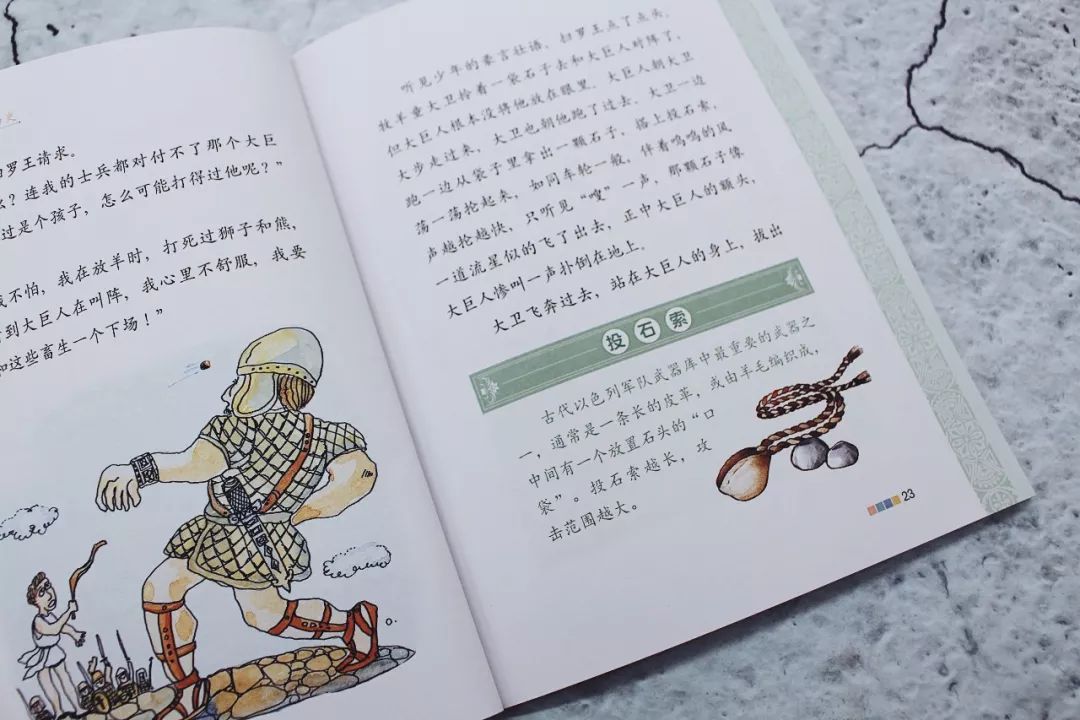 史
罗王请求。
？连我的士兵都对付不了那个大巨
过是个孩子，怎么可能打得过他呢？”
不怕，我在放羊时，打死过狮子和熊，
到大巨人在叫阵，我心里不舒服，我要
和这些畜生一个下场！”
听见少年的豪言壮语，扫罗王点了点头。
牧羊童大卫拎着一袋石子去和大巨人对阵了，
但大巨人根本没将他放在眼里。大巨人朝大卫
大步走过来，大卫也朝他跑了过去。大卫一边
跑一边从袋子里拿出一颗石子，搭上投石索，
荡一荡抡起来，如同车轮一般，伴着呜呜的风
声越抡越快，只听见“嗖”一声，那颗石子像
一道流星似的飞了出去，正中大巨人的额头，
大巨人惨叫一声扑倒在地上。
大卫飞奔过去，站在大巨人的身上，拔出
投石索
古代以色列军队武器库中最重要的武器之
一，通常是一条长的皮革，或由羊毛编织成，
中间有一个放置石头的“口
袋”。投石索越长，攻
击范围越大。
23